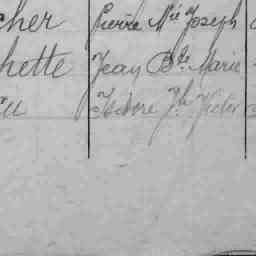 cher Pierre Mie Joseph
hette Jean Bte Marie
eu Isidore Jh Victor